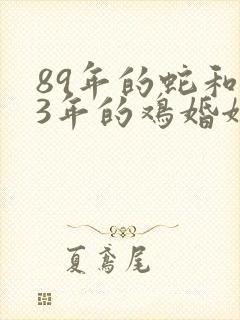 89年的蛇和
3年的鸡婚
夏鸢尾